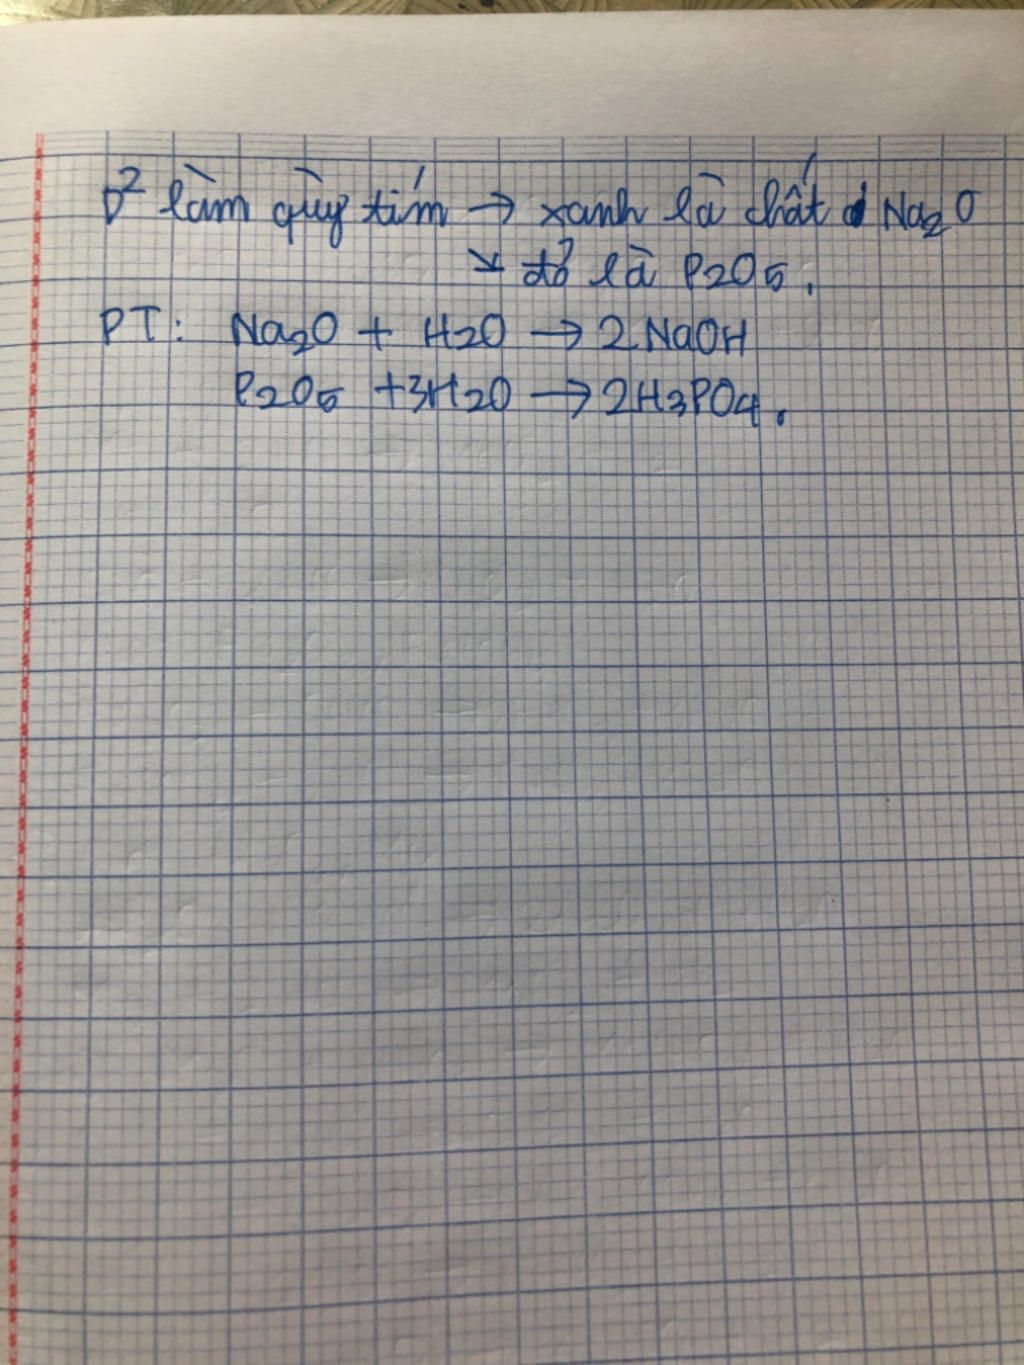 D² làm qùy tím → xanh là chất Na₂O
↘ đỏ là P2O5.
PT: Na₂O + H2O → 2NaOH
P2O5 +3H2O → 2H3PO4.